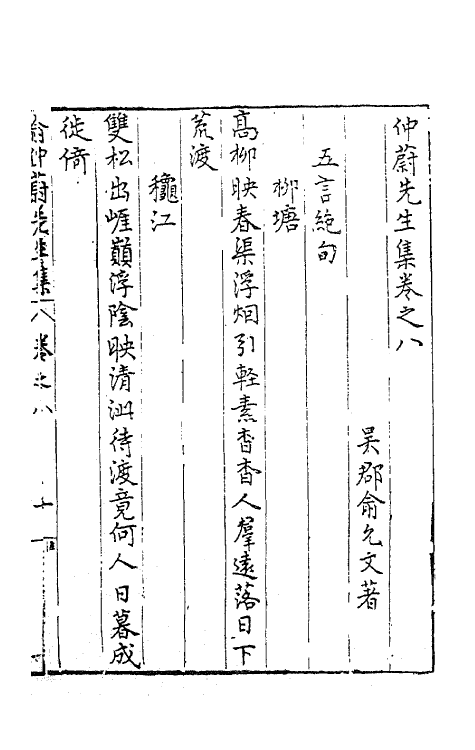 仲蔚先生集卷之八
吴郡俞允文著
五言絶句
柳塘
髙柳映春渠浮烟引軽素杳杳人羣遠落日下
荒渡
龝江
雙松出崕巔浮陰映清泚待渡竟何人日暮成
徙倚
俞仲蔚先生集 卷之八